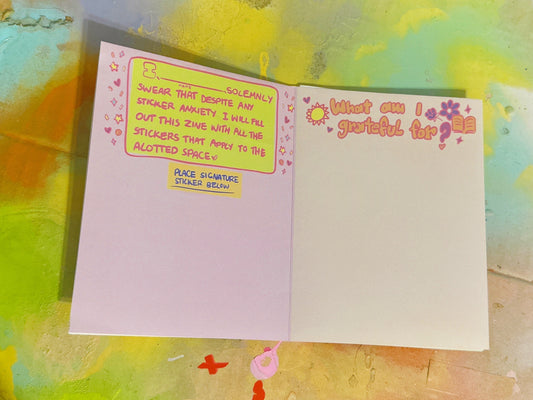 I, __________ SOLEMNLY
SWEAR THAT DESPITE ANY
STICKER ANXIETY I WILL FILL
OUT THIS ZINE WITH ALL THE
STICKERS THAT APPLY TO THE
ALOTTED SPACE
PLACE SIGNATURE
STICKER BELOW
What am I
grateful for?